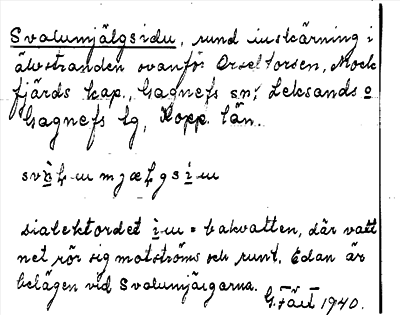 Svalumjälgsidu, rund inskärning i
älvstranden ovanför Orseltorsen, Mock
fjärds kap., Gagnefs sn, Leksands o
Gagnefs tg, Kopp. län.
dialektordet i-u = bakvatten, där vatt
net rör sig motströms och runt. Edan är
belägen vid Svalumjärgarna.
G. 1940.